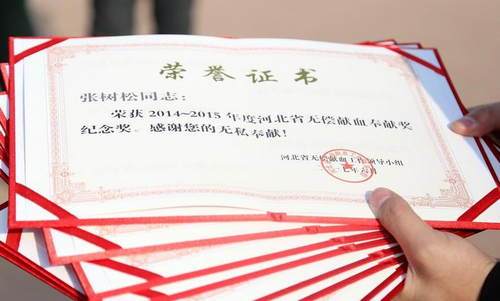 荣誉证书
张树松同志：
荣获2014~2015年度河北省无偿献血奉献奖
纪念奖。感谢您的无私奉献！
河北省无偿献血工作领导小组